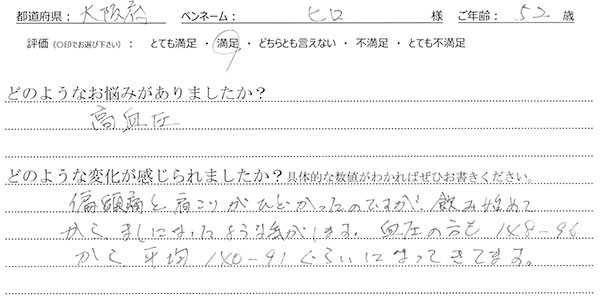 都道府県： 大阪府 ペンネーム： ヒロ 様 ご年齢： 52 歳
評価（○印でお選び下さい）： とても満足 ・ 満足 ・ どちらとも言えない ・ 不満足 ・ とても不満足
どのようなお悩みがありましたか？
高血圧
どのような変化が感じられましたか？具体的な数値がわかればぜひお書きください。
偏頭痛と肩こりがひどかったのですが、飲み始めて
から、ましになったような気がします。血圧の方も148-96
から平均140-91ぐらいになってきてます。